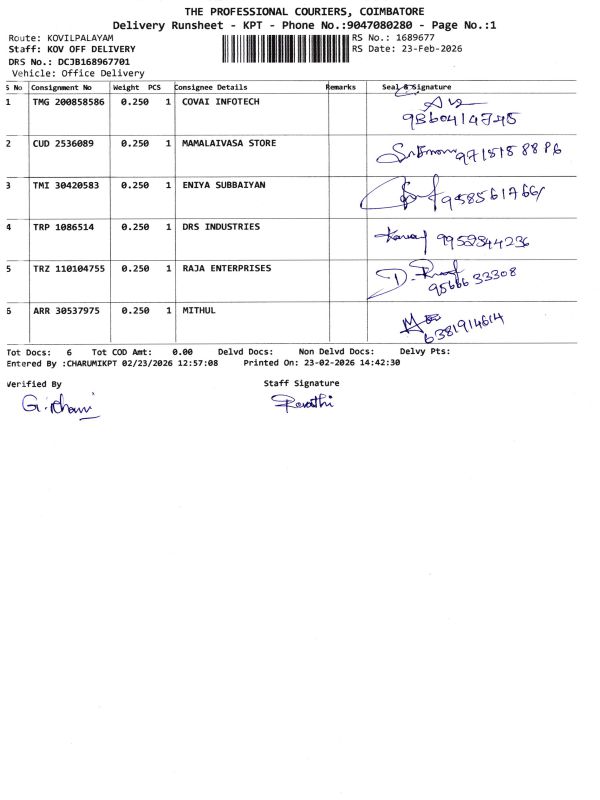 THE PROFESSIONAL COURIERS, COIMBATORE
Delivery Runsheet - KPT - Phone No.:9047080280 - Page No.:1
Route: KOVILPALAYAM RS No.: 1689677
Staff: KOV OFF DELIVERY RS Date: 23-Feb-2026
DRS No.: DCJB168967701
Vehicle: Office Delivery
S No Consignment No Weight PCS Consignee Details Remarks Seal & Signature
1 TMG 200858586 0.250 1 COVAI INFOTECH
2 CUD 2536089 0.250 1 MAMALAIVASA STORE
3 TMI 30420583 0.250 1 ENIYA SUBBAIYAN
4 TRP 1086514 0.250 1 DRS INDUSTRIES
5 TRZ 110104755 0.250 1 RAJA ENTERPRISES
9566633308
6 ARR 30537975 0.250 1 MITHUL
6381914614
Tot Docs: 6 Tot COD Amt: 0.00 Delvd Docs: Non Delvd Docs: Delvy Pts:
Entered By :CHARUMIKPT 02/23/2026 12:57:08 Printed On: 23-02-2026 14:42:30
Verified By Staff Signature
Revathi